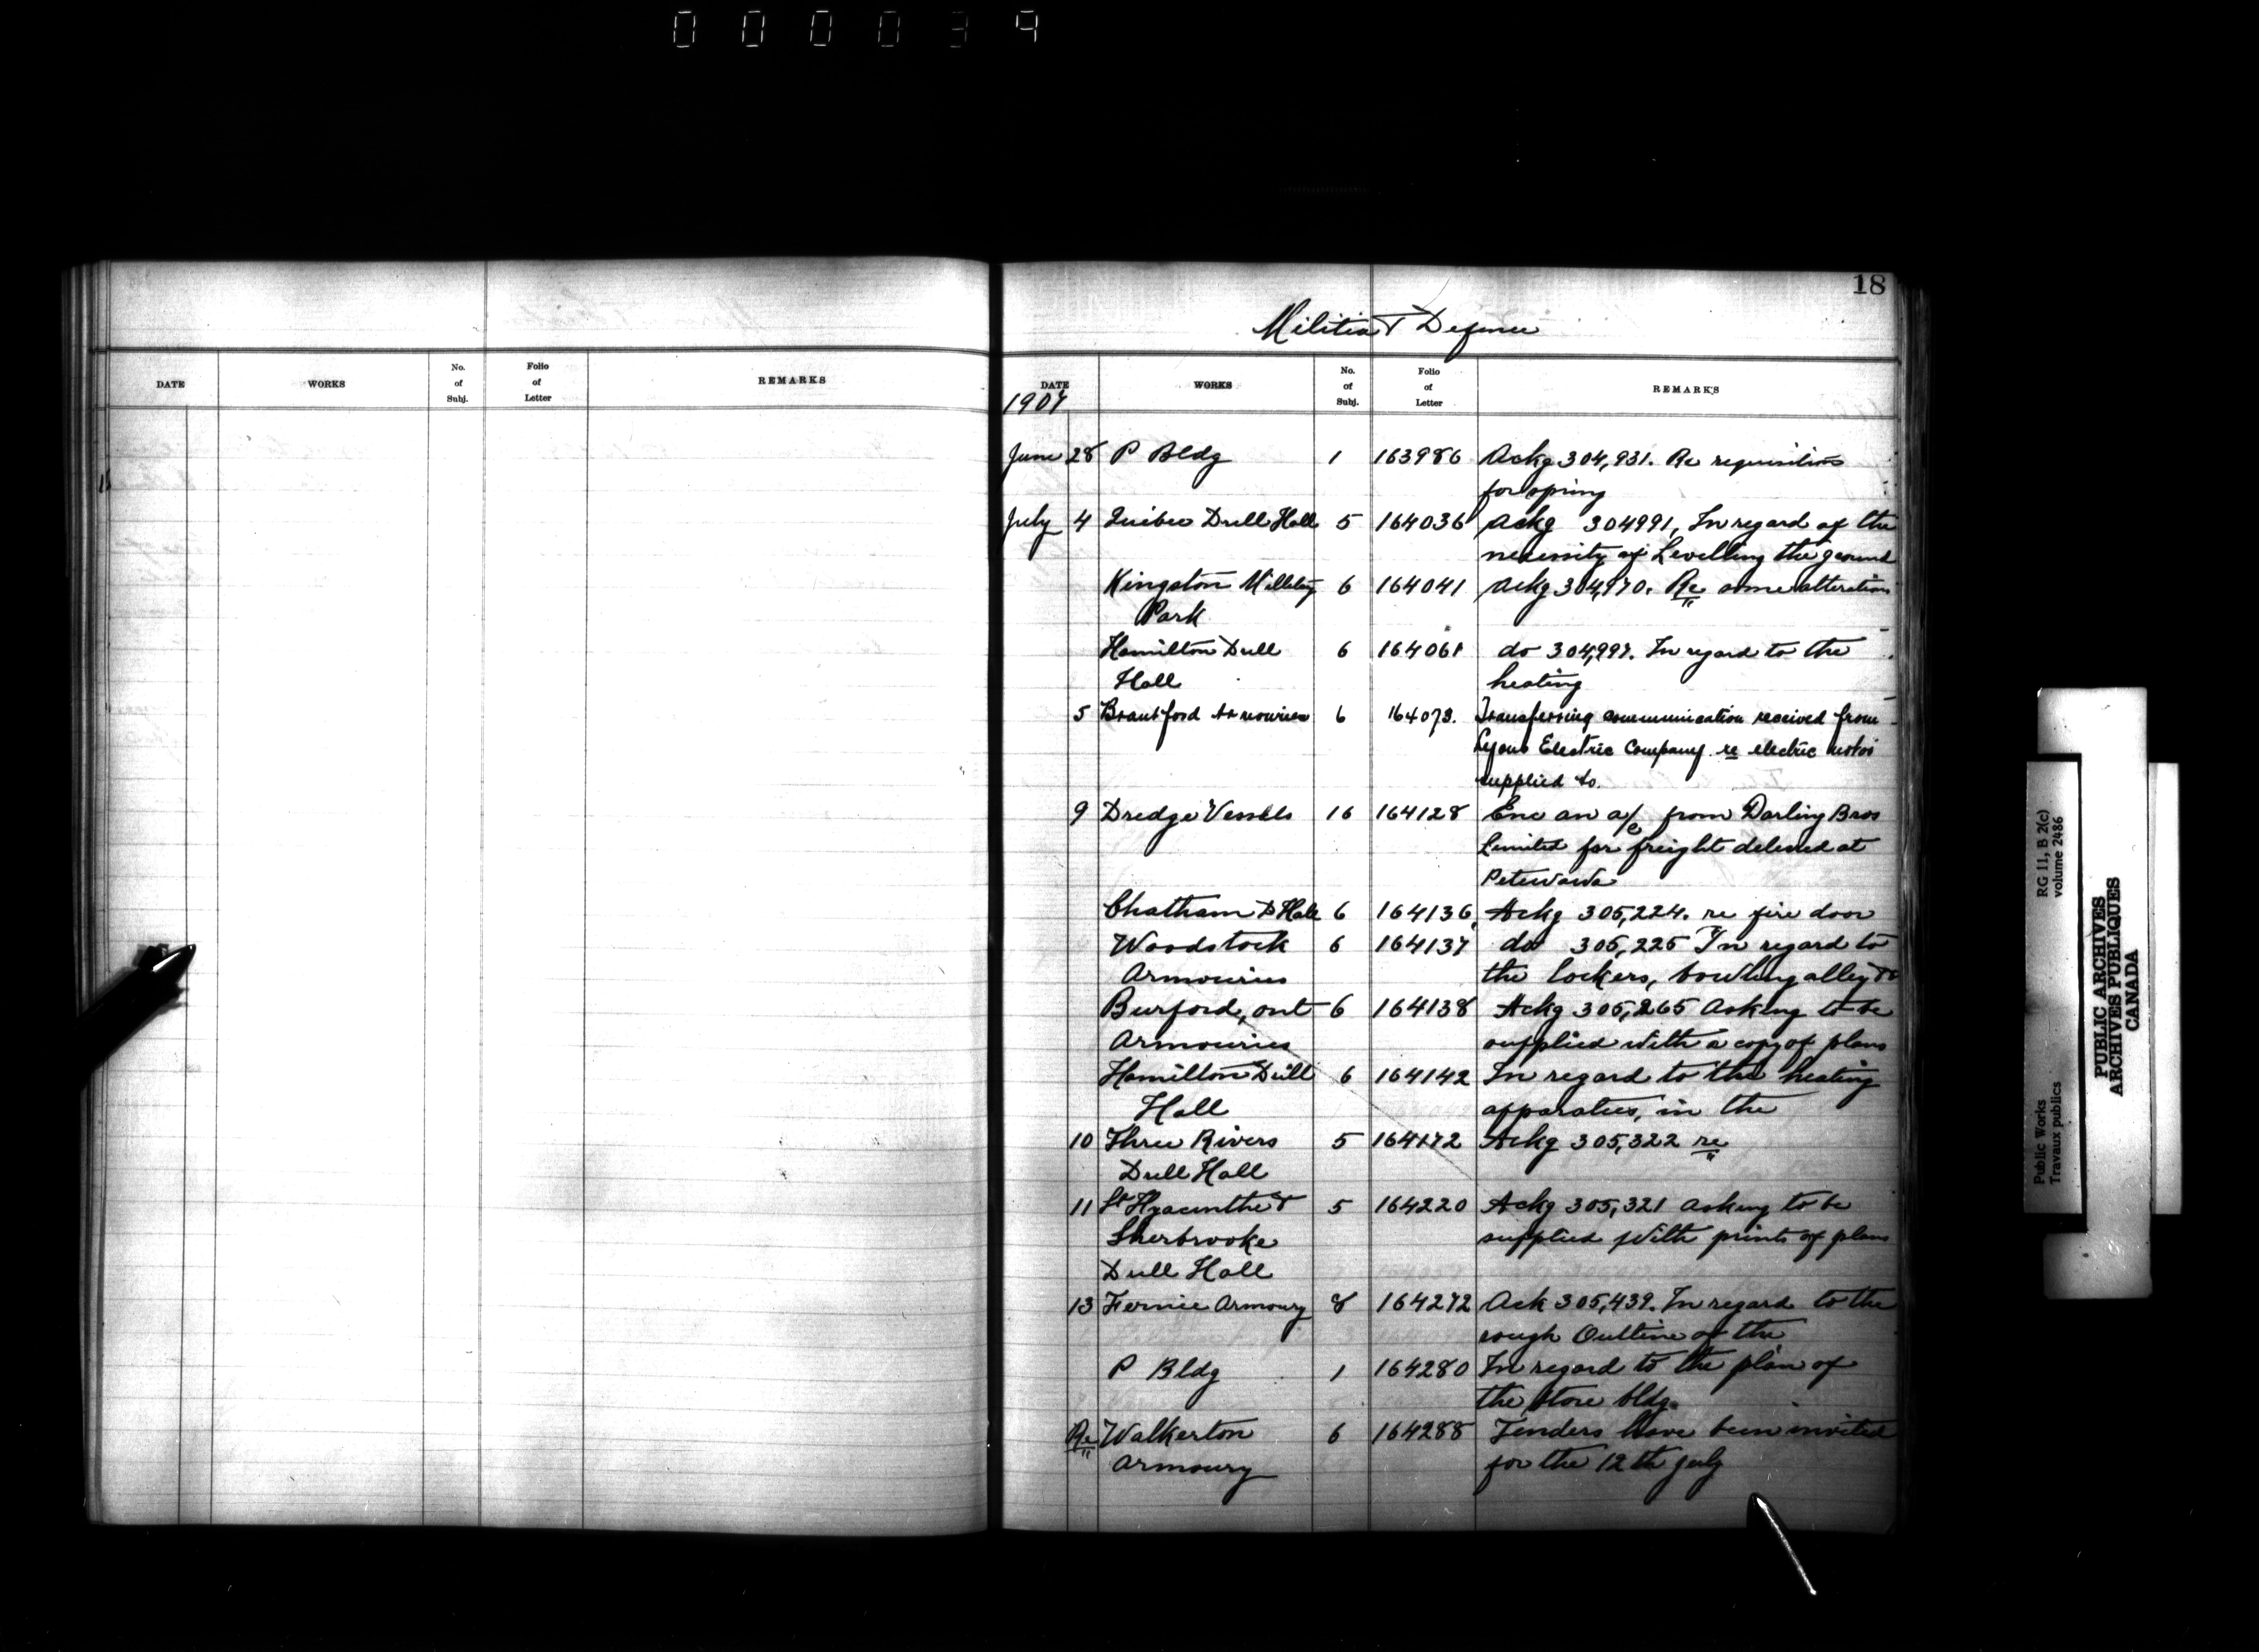 000039
18
Militia & Defence
DATE WORKS No. of Subj. Folio of Letter REMARKS
DATE WORKS No. of Subj. Folio of Letter REMARKS
1907
June 28 P Bldg 1 163986 Ackg 304,931. Re requisitions
for spring
July 4 Quebec Drill Hall 5 164036 Ackg 304991, In regard of the
necessity of Levelling the ground
Kingston Military 6 164041 Ackg 304,970. Re some alterations
Park
Hamilton Drill 6 164061 do 304,997. In regard to the
Hall heating
5 Brantford Armouries 6 164073. Transferring communication received from
Lyons Electric Company re electric motor
supplied to.
9 Dredge Vessels 16 164128 Enc an a/c from Darling Bros
Limited for freight delivered at
Petewawa
Chatham D Hall 6 164136 Ackg 305,224. re fire door
Woodstock 6 164137 do 305,225 In regard to
Armouries the lockers, bowling alley &c
Burford, Ont 6 164138 Ackg 305,265 Asking to be
Armouries supplied with a copy of plans
Hamilton Drill 6 164142 In regard to the heating
Hall apparatus, in the
10 Three Rivers 5 164172 Ackg 305,322 re
Drill Hall
11 St Hyacinthe & 5 164220 Ackg 305,321 asking to be
Sherbrooke supplied with prints of plans
Drill Hall
13 Fernie Armoury 8 164272 Ack 305,439. In regard to the
rough Outline of the
P Bldg 1 164280 In regard to the plan of
the store bldg.
Re Walkerton 6 164288 Tenders have been invited
Armoury for the 12th July
Public Works RG 11, B 2(c)
Travaux publics volume 2486
PUBLIC ARCHIVES
ARCHIVES PUBLIQUES
CANADA